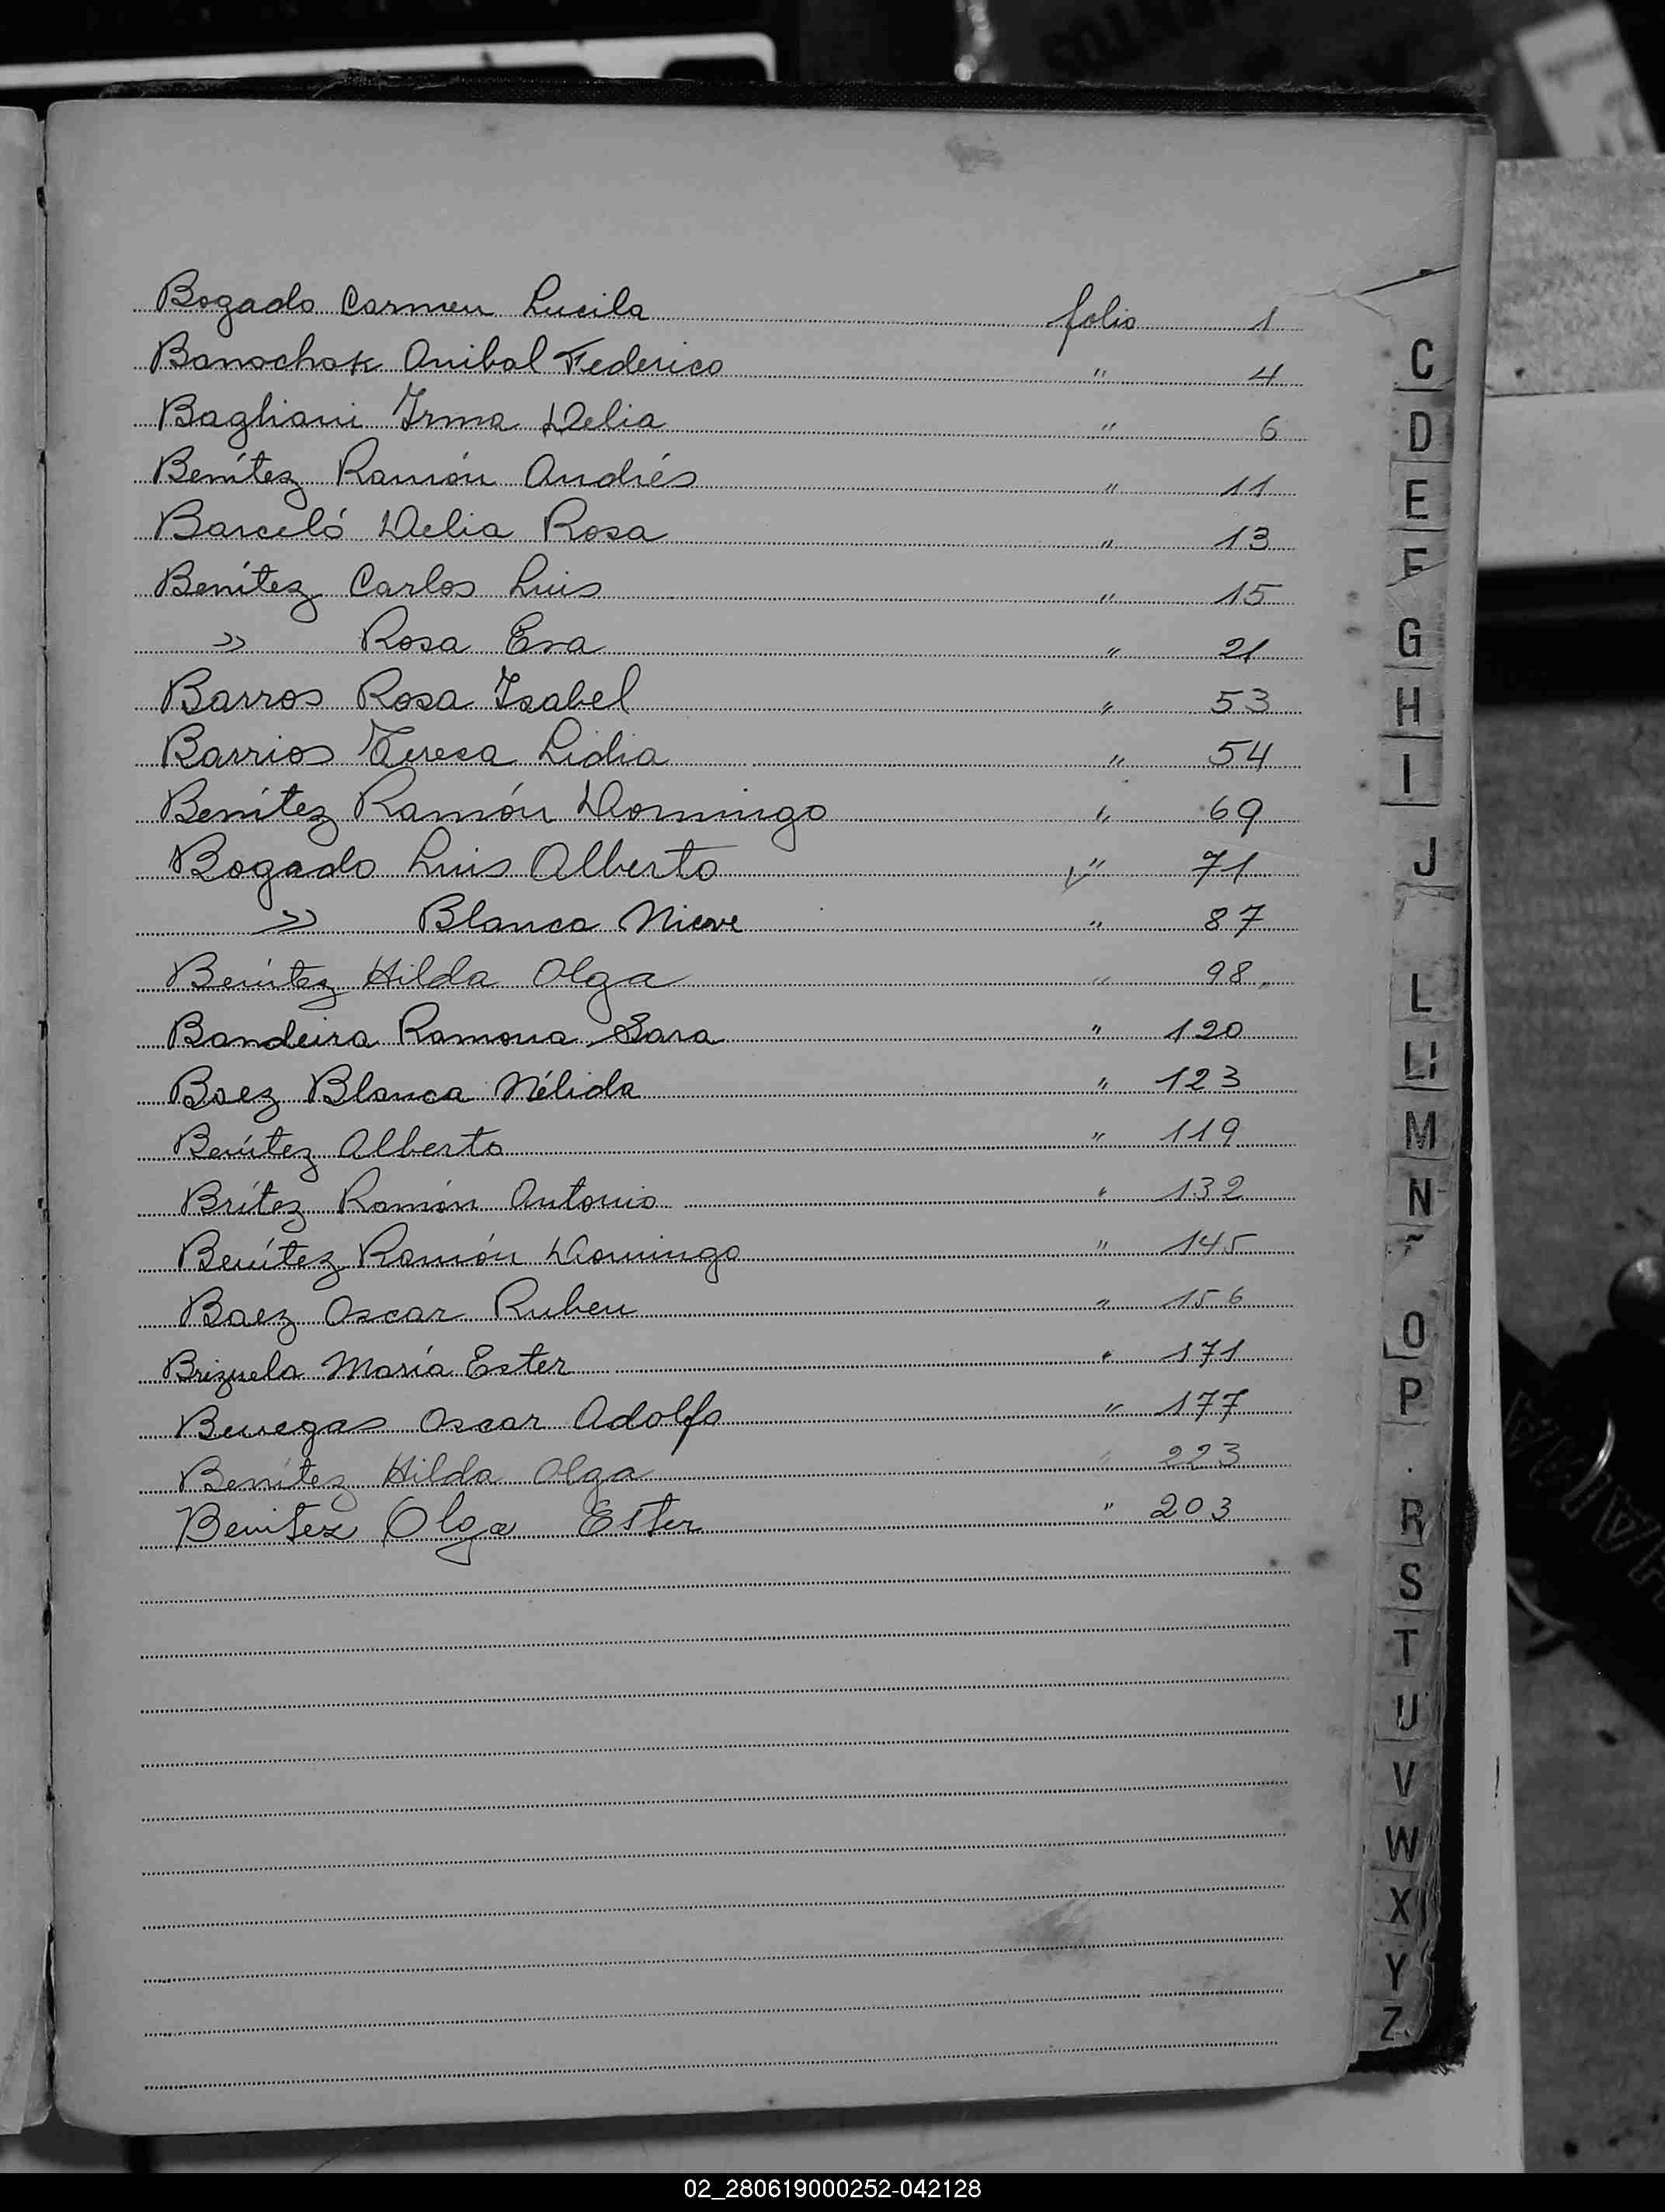 Bogado Carmen Lucila folio 1
Banochak Anibal Federico " 4
Bagliani Irma Delia " 6
Benítez Ramón Andrés " 11
Barceló Delia Rosa " 13
Benítez Carlos Luis " 15
" Rosa Eva " 21
Barros Rosa Isabel " 53
Barrios Teresa Lidia " 54
Benítez Ramón Domingo " 69
Bogado Luis Alberto " 71
" Blanca Nieve " 87
Benítez Hilda Olga " 98
Bandeira Ramona Sara " 120
Baez Blanca Nélida " 123
Benítez Alberto " 119
Brítez Ramón Antonio " 132
Benítez Ramón Domingo " 145
Baez Oscar Ruben " 156
Brizuela María Ester " 171
Benegas Oscar Adolfo " 177
Benítez Hilda Olga " 223
Benitez Olga Ester " 203
C
D
E
F
G
H
I
J
L
Ll
M
N
O
P
R
S
T
U
V
W
X
Y
Z
02_280619000252-042128